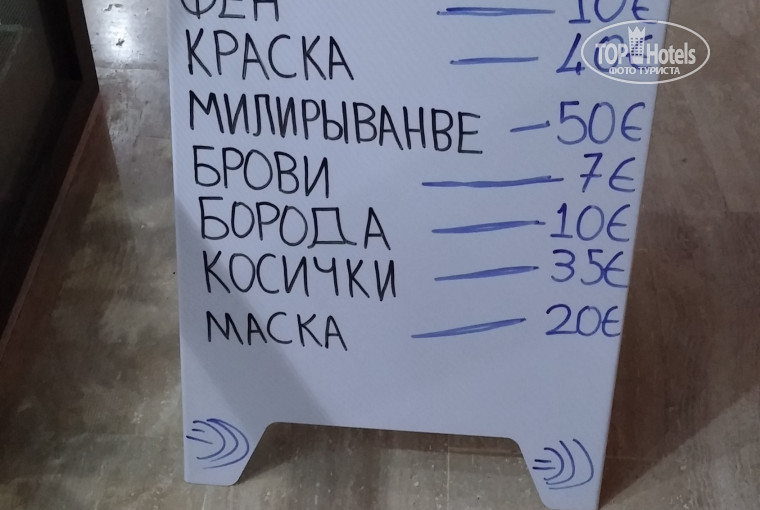 ФЕН — 10€
КРАСКА — 40€
МИЛИРЫВАНВЕ — 50€
БРОВИ — 7€
БОРОДА — 10€
КОСИЧКИ — 35€
МАСКА — 20€
TOP Hotels
ФОТО ТУРИСТА